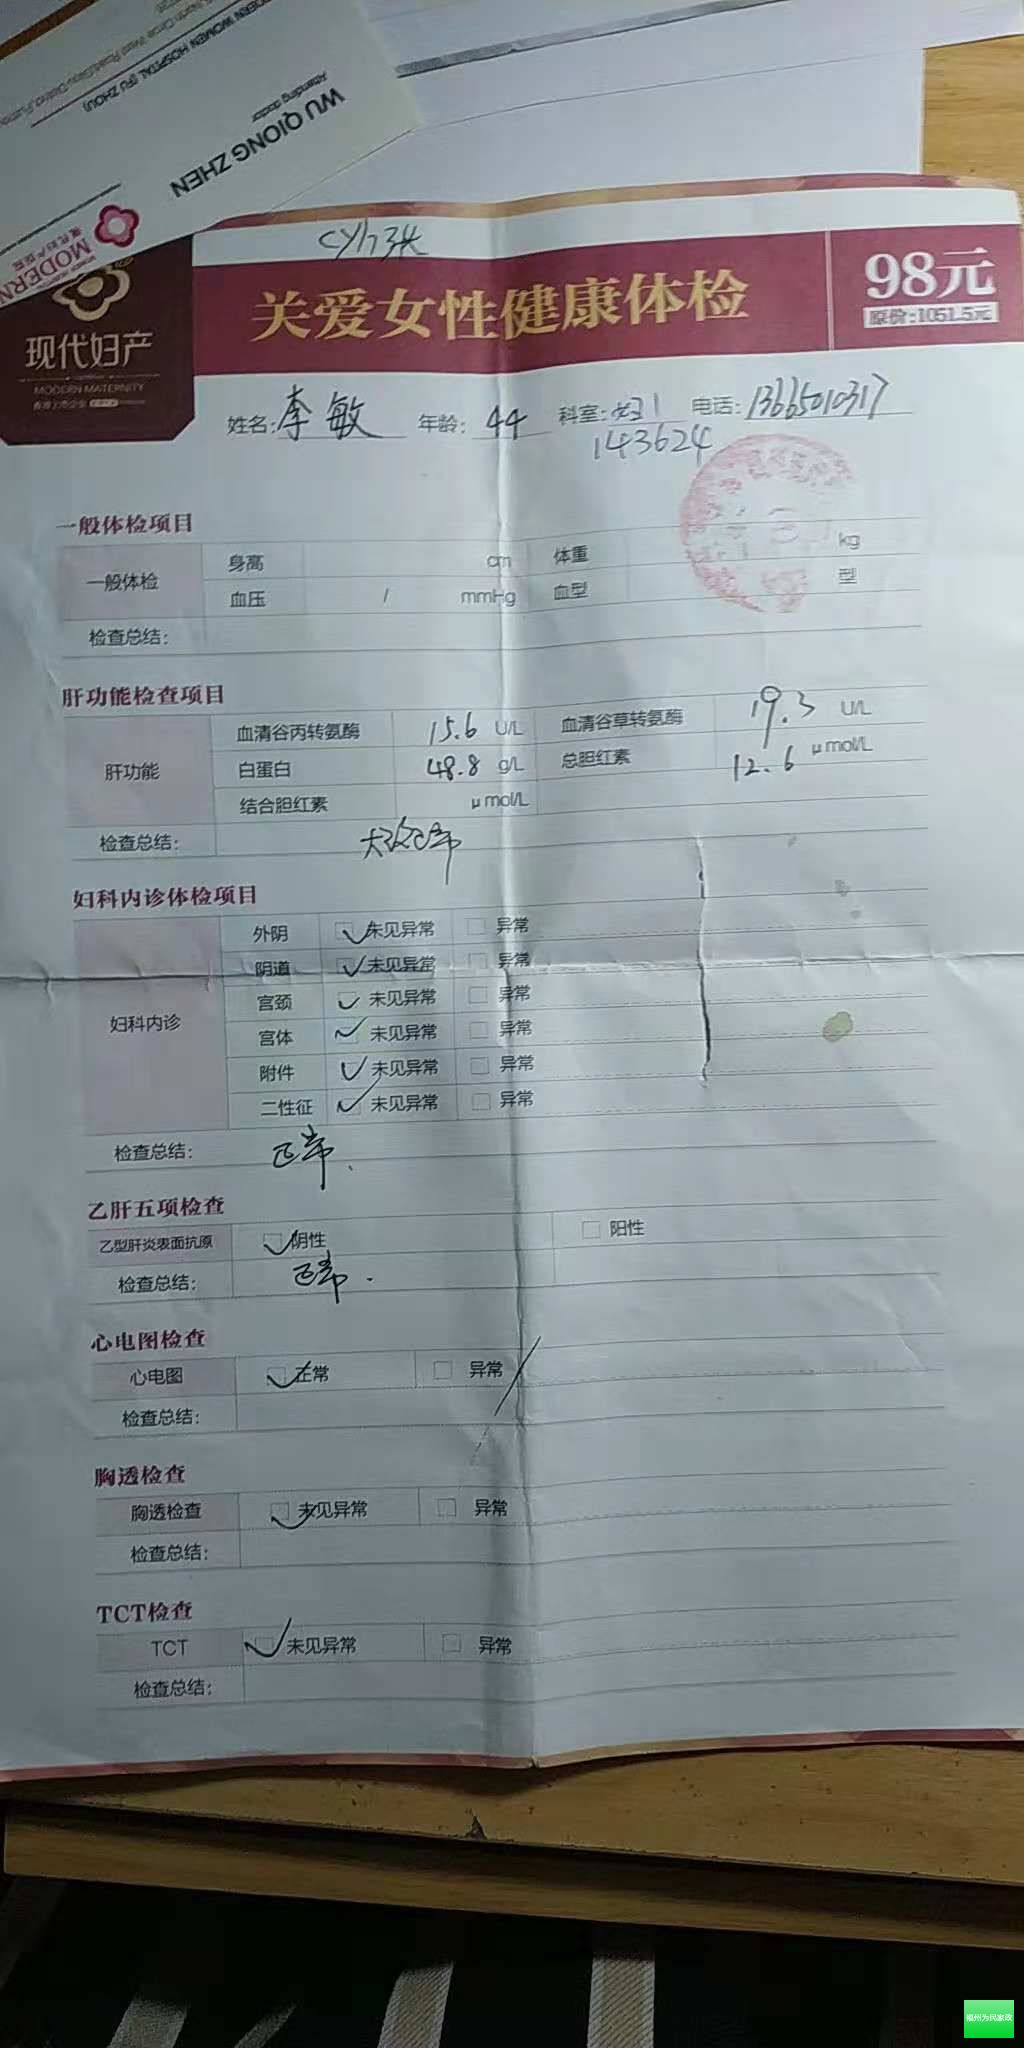 MODERN WOMEN HOSPITAL (FU ZHOU)
Attending doctor
WU QIONG ZHEN
MODERN
现代妇产
MODERN MATERNITY
关爱女性健康体检
98元
原价:1051.5元
姓名:李敏 年龄:44 科室:妇1 电话:13665010317
143624
一般体检项目
一般体检 身高 cm 体重 kg
血压 / mmHg 血型 型
检查总结:
肝功能检查项目
肝功能 血清谷丙转氨酶 15.6 U/L 血清谷草转氨酶 19.3 U/L
白蛋白 48.8 g/L 总胆红素 12.6 μmol/L
结合胆红素 μmol/L
检查总结:
妇科内诊体检项目
妇科内诊 外阴 未见异常 异常
阴道 未见异常 异常
宫颈 未见异常 异常
宫体 未见异常 异常
附件 未见异常 异常
二性征 未见异常 异常
检查总结: 正常.
乙肝五项检查
乙型肝炎表面抗原 阴性 阳性
检查总结: 正常.
心电图检查
心电图 正常 异常
检查总结:
胸透检查
胸透检查 未见异常 异常
检查总结:
TCT检查
TCT 未见异常 异常
检查总结:
福州为民家政